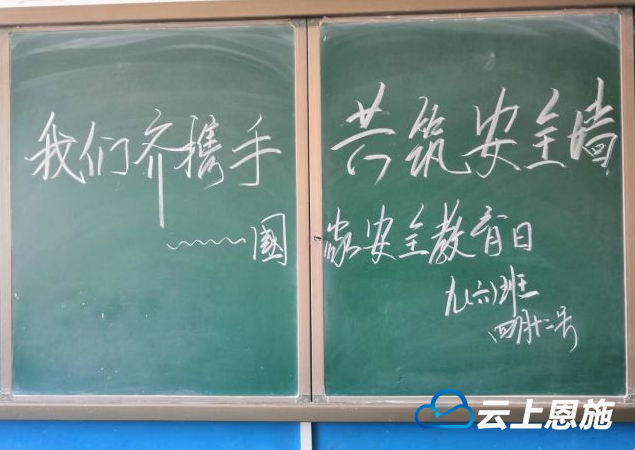 我们齐携手 共筑安全墙
~~~~國家安全教育日
九(六)班
四月十二号
云上恩施